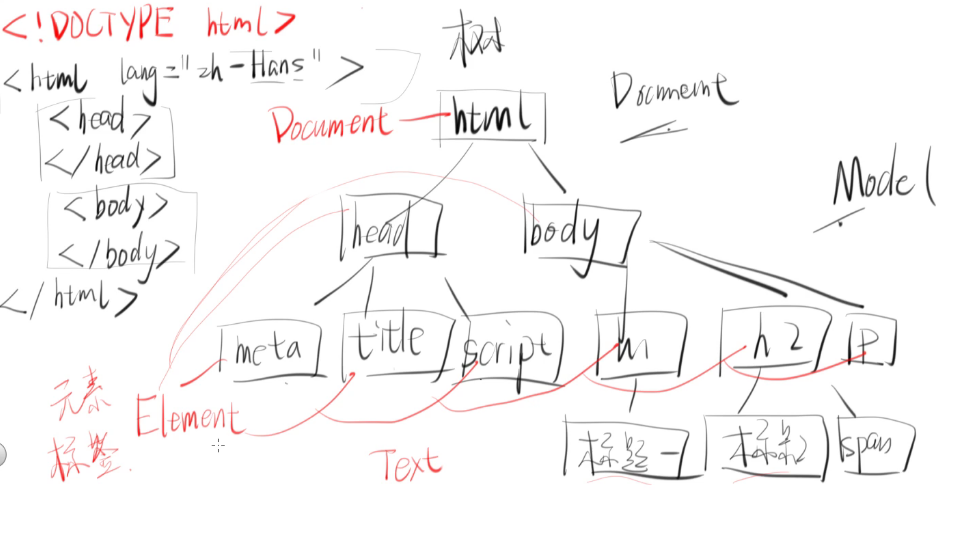 <!DOCTYPE html>
<html lang="zh-Hans">
<head>
</head>
<body>
</body>
</html>
树
Document
html
Docment
Model
head
body
meta
title
script
h1
h2
P
元素
标签.
Element
Text
标题一
span